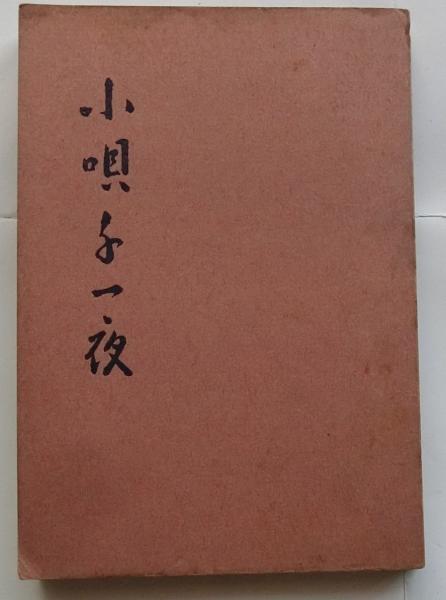 小唄千一夜